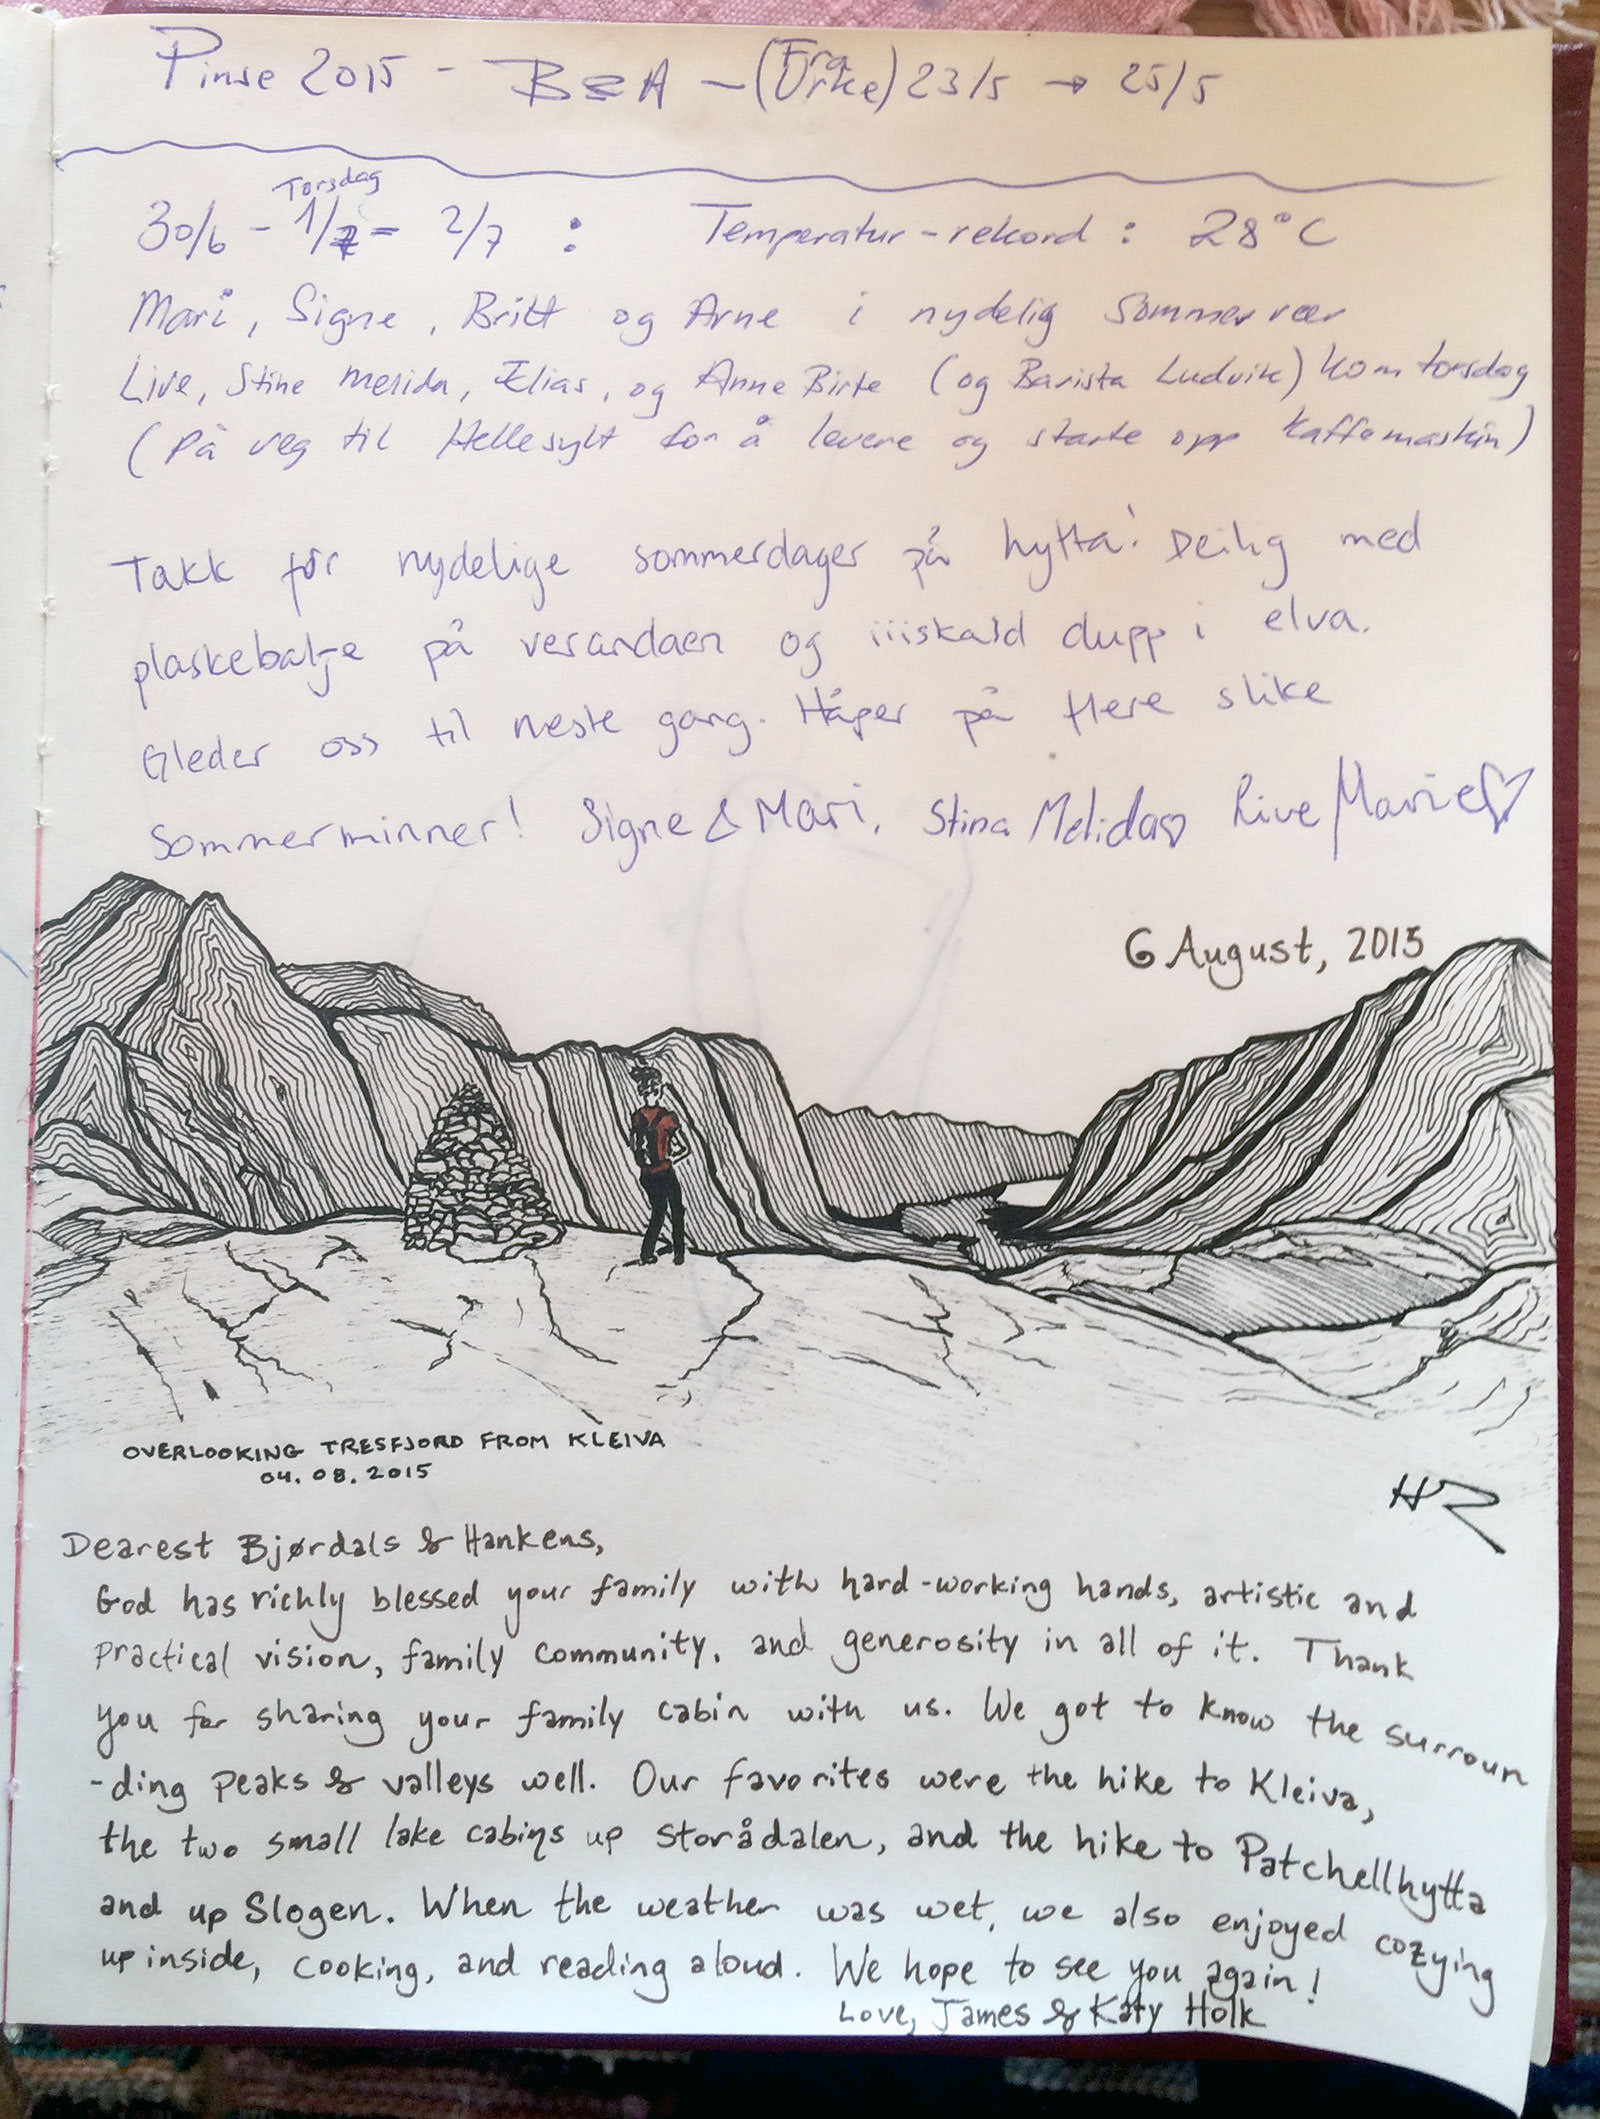 Pinse 2015 - B&A - (Fra Urke) 23/5 → 25/5
Torsdag
30/6 - 1/7 - 2/7 : Temperatur-rekord : 28°C
Mari, Signe, Britt og Arne i nydelig sommervær
Live, Stine Melida, Elias, og Anne Birte (og Barista Ludvik) kom torsdag
(På veg til Hellesylt for å levere og starte opp kaffemaskin)
Takk for nydelige sommerdager på hytta! Deilig med
plaskebalje på verandaen og iiiskald dupp i elva.
Gleder oss til neste gang. Håper på flere slike
sommerminner! Signe & Mari, Stina Melida♡ Live Marie♡
6 August, 2015
OVERLOOKING TRESFJORD FROM KLEIVA
04.08.2015
Dearest Bjørdals & Hankens,
God has richly blessed your family with hard-working hands, artistic and
practical vision, family community, and generosity in all of it. Thank
you for sharing your family cabin with us. We got to know the surroun
-ding peaks & valleys well. Our favorites were the hike to Kleiva,
the two small lake cabins up Storådalen, and the hike to Patchellhytta
and up Slogen. When the weather was wet, we also enjoyed cozying
up inside, cooking, and reading aloud. We hope to see you again!
Love, James & Katy Holk